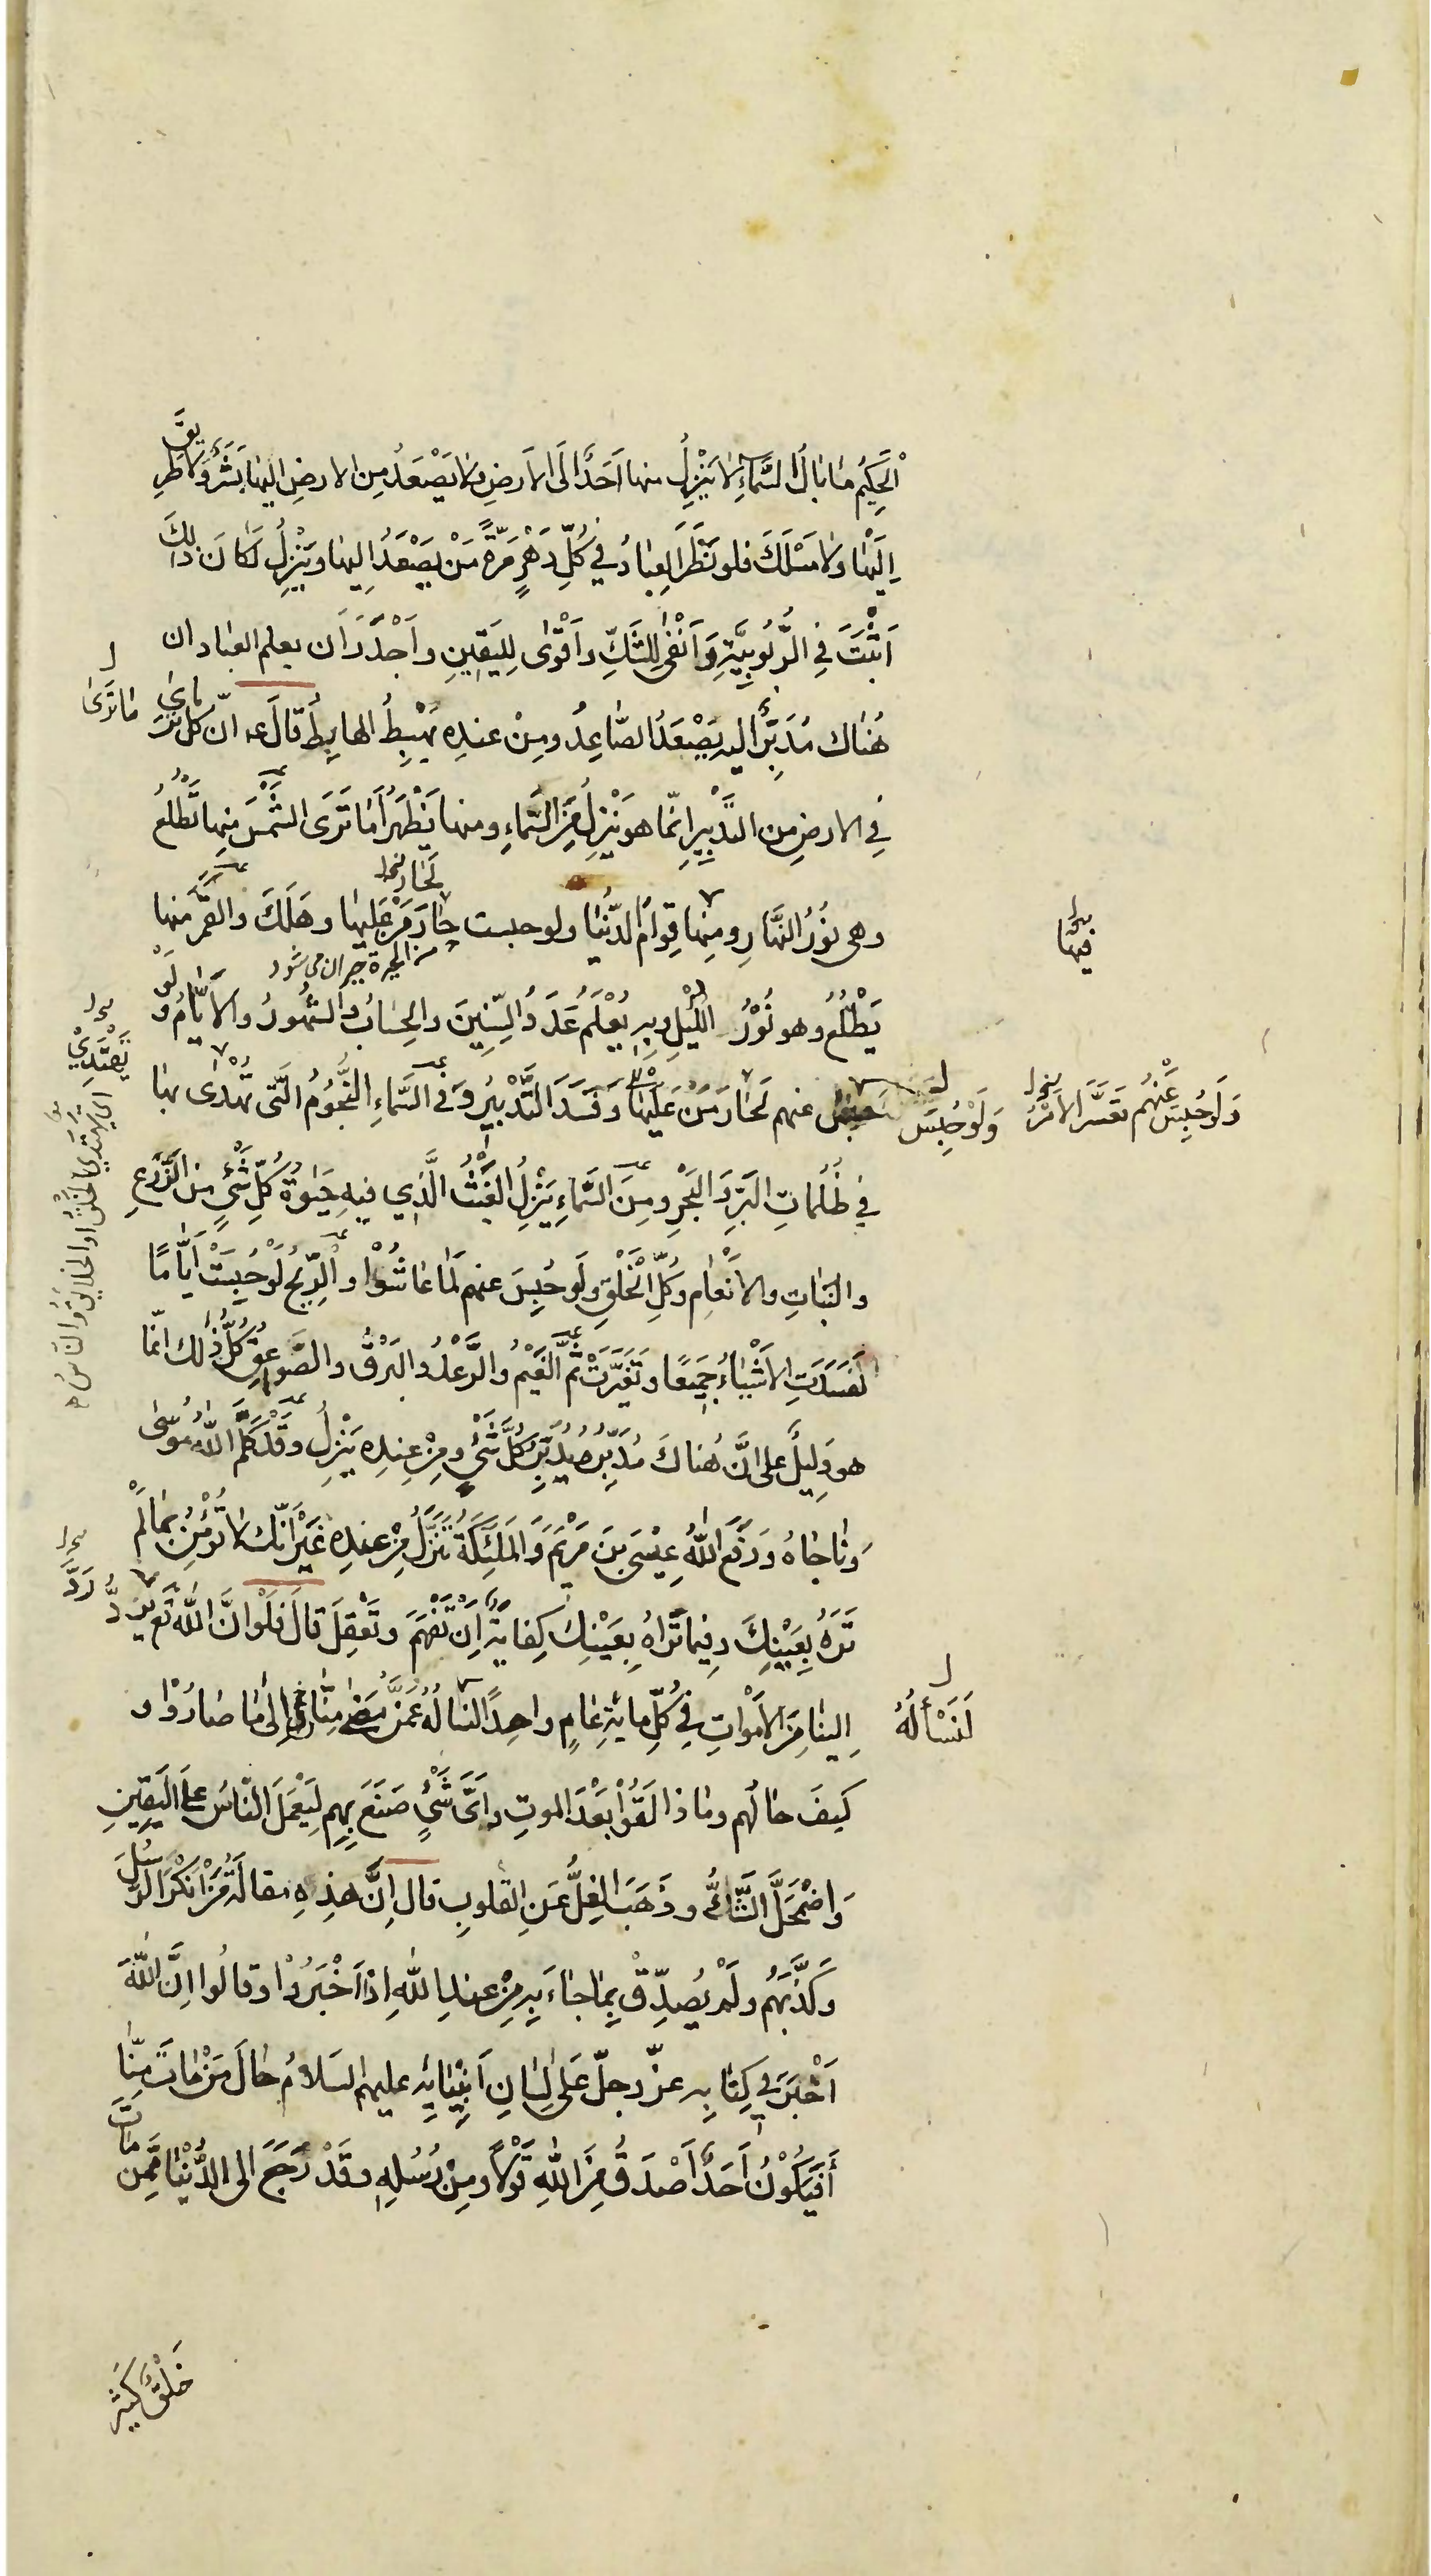 الْحَكِيمُ مَا بَالُ السَّمَاءِ لَا يَنْزِلُ منها اَحَدٌ اِلَى الْاَرضِ وَلَا يَصْعَدُ مِنَ الارضِ اليها بَشَرٌ وَلَا طَرِيقَ
اِلَيْهَا ولا مَسْلَكَ فلو نَظَرَ العِبَادُ فِي كُلِّ دَهْرٍ مَرَّةً مَنْ يَصْعَدُ اِليها وَيَنْزِلُ لَكَانَ ذٰلِكَ
اَثْبَتَ فِي الرُّبُوبِيَّةِ وَاَنْفٰى لِلشَّكِّ وَاَقْوٰى لِلْيَقِينِ وَاَجْدَرَ اَن يعلم العباد ان
هُنَاكَ مُدَبِّرًا اليه يَصْعَدُ الصَّاعِدُ ومِنْ عندِه يَهْبِطُ الهابِطُ قَالَ ع انّ كل مَا تَرَىٰ
مَا تَرَىٰ
فِي الارضِ من التَّدْبِيرِ اِنَّمَا هو يَنْزِلُ مِنَ السَّمَاءِ ومنها يَظْهَرُ اَمَا تَرَى الشَّمْسَ مِنها تَطْلُعُ
لَحَارَ
وهى نُوْرُ النَّهَارِ ومِنها قِوَامُ الدُّنْيَا ولو حبست حَارَ مَنْ عَلَيْها وهَلَكَ والقَمَر منها
فيها
من الحيرة حيران مى شود
يَطْلُعُ وهو نُوْرُ اللَّيْلِ وبِه يُعْلَمُ عَدَدُ السِّنِينَ والحِسَابُ والشُّهُورُ والْاَيَّامُ وَلَوْ
وَلَو حُبِسَ عَنْهُم تَعَسَّرَ الاَمْرُ
وَلَوْ حُبِسَ
حبس عنهم لَحَارَ مَنْ عَلَيْها وَفَسَدَ التَّدْبِيرُ وَفى السَّمَاءِ النُّجُومُ الَّتى يُهْدٰى بها
يَهْتَدِي
اى يَهْتَدِي الخَلْقُ او الخلايق والناس
فِي ظُلُمَاتِ البَرِّ وَالبَحْرِ ومِنَ السَّمَاءِ يَنْزِلُ الغَيْثُ الَّذِي فيهِ حَيٰوةُ كُلِّ شَيْءٍ مِنَ الزَّرْعِ
والنَّبَاتِ والاَنْعَامِ وَكُلِّ الْخَلْقِ ولَو حُبِسَ عنهم لَمَا عَاشُوْا والرِّيحُ لَوْ حُبِسَتْ اَيَّامًا
لَفَسَدَتِ الْاَشْيَاءُ جَمِيعًا وتَغَيَّرَتْ ثُمَّ الْغَيْمُ والرَّعْدُ والبَرْقُ والصَّوَاعِقُ كُلُّ ذٰلك انّما
هو دَلِيلٌ على اَنَّ هُنَاكَ مُدَبِّرًا يُدَبِّرُ كُلَّ شَيْءٍ ومِنْ عِندِه يَنْزِلُ وقَدْ كَلَّمَ اللهُ مُوسٰى
وَنَاجَاهُ وَرَفَعَ اللهُ عِيْسَى بنَ مَرْيَمَ وَالمَلَئِكَةُ تَنَزَّلُ مِنْ عندِه غَيْرَ اَنَّكَ لَا تُؤْمِنُ بِمَا لَمْ
تَرَهُ بِعَيْنِكَ وفِيمَا تَرَاهُ بِعَيْنِكَ كِفَايَةٌ اِنْ تَفْهَمَ وتَعْقِلَ قَالَ فَلَوْ اَنَّ اللهَ تَع يَرُدُّ
رَدَّ
اِلينا مِنَ الاَمْوَاتِ فِي كُلِّ مِائَةِ عَامٍ واحِدًا لِنَسْاَلَهُ عَمَّنْ مَضٰى مِنَّا اِلٰى مَا صَارُوْا و
لَنَسْأَلُهُ
كَيفَ حَالُهم ومَا ذا لَقُوْا بَعْدَ الموتِ واَيَّ شَيْءٍ صَنَعَ بِهِم لِيَعْمَلَ النَّاسُ عَلَى الْيَقِينِ
وَاضْمَحَلَّ الشَّكُّ وذَهَبَ الغِلُّ عَنِ القلوبِ قال اِنَّ هذِهِ مقالَةُ مَنْ اَنْكَرَ الرُّسُلَ
وَكَذَّبَهُم ولَمْ يُصَدِّقْ بِمَا جَاءَ بِه مِنْ عندِ اللهِ اِذْ اَخْبَرُوْا وقالُوا اِنَّ اللهَ
اَخْبَرَ فى كِتَابِه عزّ وجلّ عَلٰى لِسَانِ اَنْبِيَائِه عليهم السَلامُ حَالَ مَنْ مَاتَ مِنَّا
أَفَيَكُوْنُ اَحَدٌ اَصْدَقَ مِنَ اللهِ قَوْلًا ومِنْ رُسُلِهِ وقَدْ رَجَعَ الى الدُّنْيَا مِمَّن مَاتَ
خَلْقٌ كَثِيْرٌ